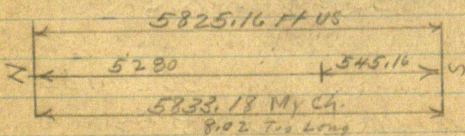 5825.16 Ft US
N 5280 545.16 S
5833.18 My Ch.
8.02 Too Long